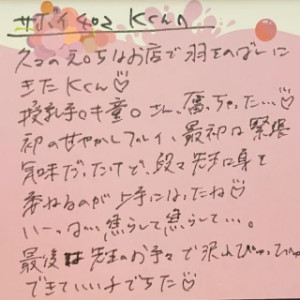 サボイ402 Kくんへ
久々のえ○ちなお店で羽をのばしに
きたKくん♡
授乳手○キ童○さん、奪っちゃった…♡
初の甘やかしプレイ、最初は緊張
気味だったけど、段々先生に身を
委ねるのが上手になったね♡
いーっぱい焦らして焦らして…。
最後は先生のお手々で沢山ぴゅっぴゅ
できていい子でちた♡